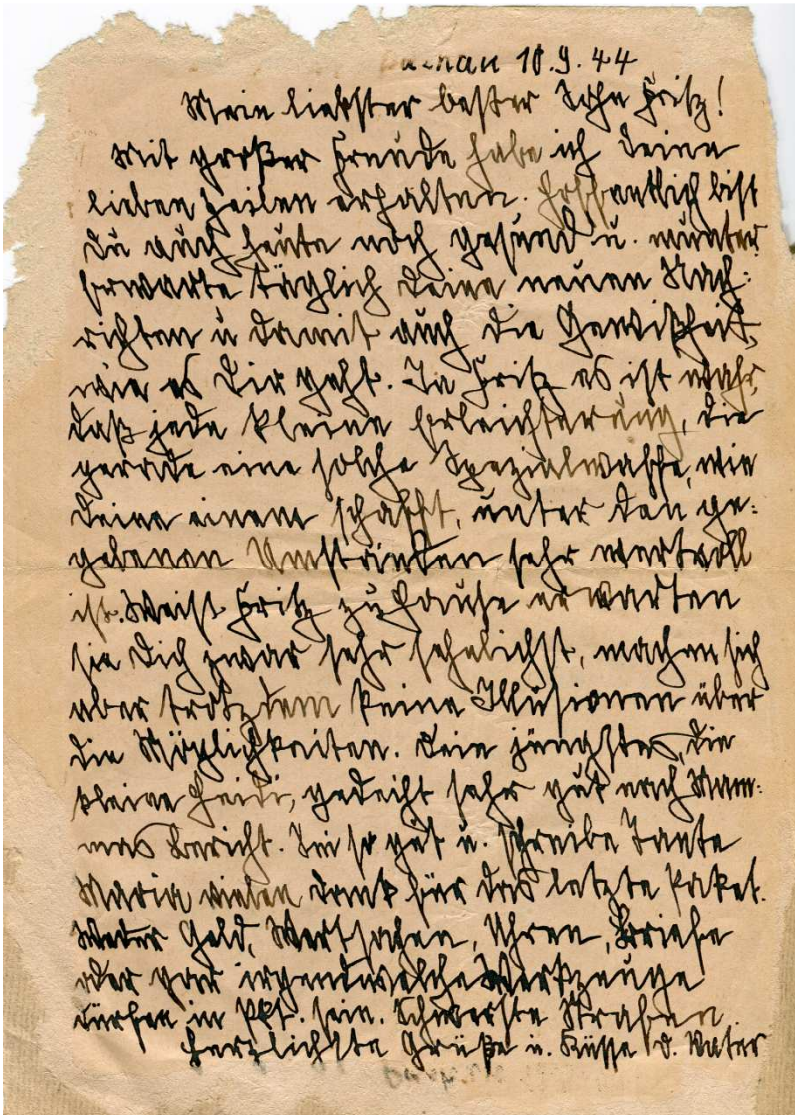 10.9.44
Mein liebster bester Sohn Fritz!
Mit großer Freude habe ich Deine
lieben Zeilen erhalten. Hoffentlich bist
Du auch heute noch gesund u. munter.
Erwarte täglich Deine neuen Nach-
richten u damit auch die Gewißheit,
wie es Dir geht. Ja Fritz es ist wahr,
daß jede kleine Erleichterung, die
gerade eine solche Spezialwaffe, wie
Deine einem schafft, unter den ge-
gebenen Umständen sehr wertvoll
ist. Weißt Fritz zu Hause erwarten
sie Dich zwar sehr sehnlichst, machen sich
aber trotzdem keine Illusionen über
die Möglichkeiten. Dein jüngstes, die
kleine Heidi, gedeiht sehr gut nach Mam-
mas Bericht. Sei so gut u. schreibe Tante
Maria vielen Dank für das letzte Paket.
Weder Geld, Wertsachen, Uhren, Briefe
oder gar irgendwelche Werkzeuge
dürfen im Pkt. sein. Schwerste Strafen.
Herzlichste Grüße u. Küsse D. Vater